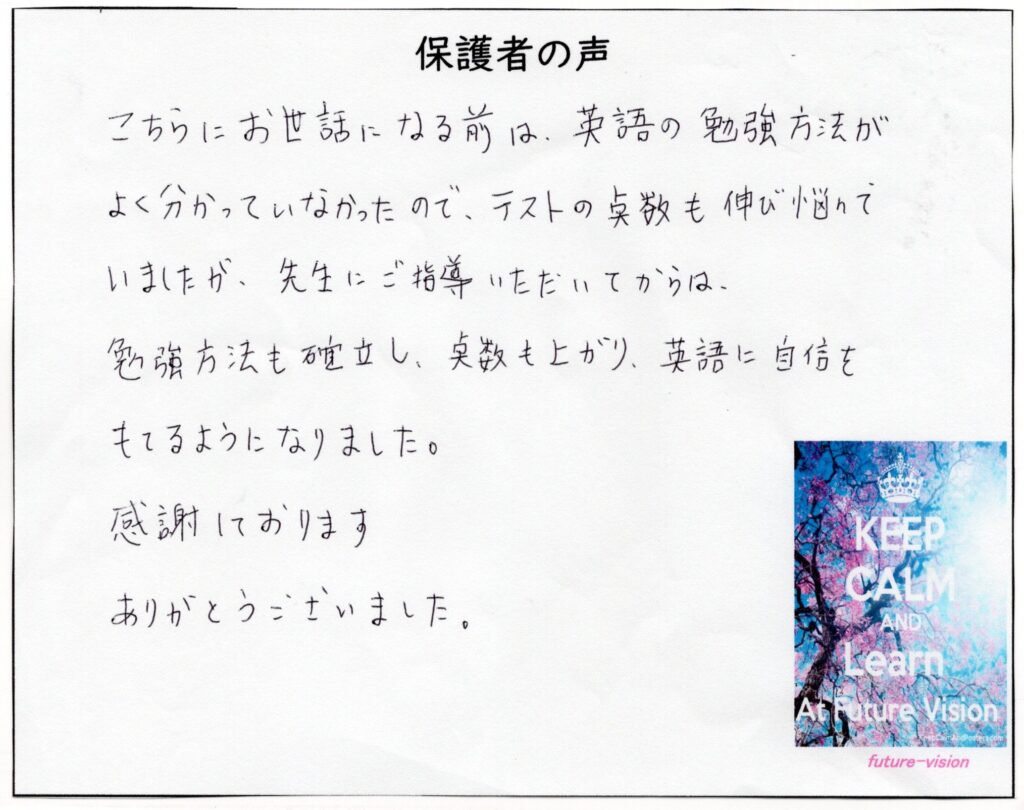 保護者の声
こちらにお世話になる前は、英語の勉強方法が
よく分かっていなかったので、テストの点数も伸び悩んで
いましたが、先生にご指導いただいてからは、
勉強方法も確立し、点数も上がり、英語に自信を
もてるようになりました。
感謝しております
ありがとうございました。
KEEP
CALM
AND
Learn
At Future Vision
future-vision